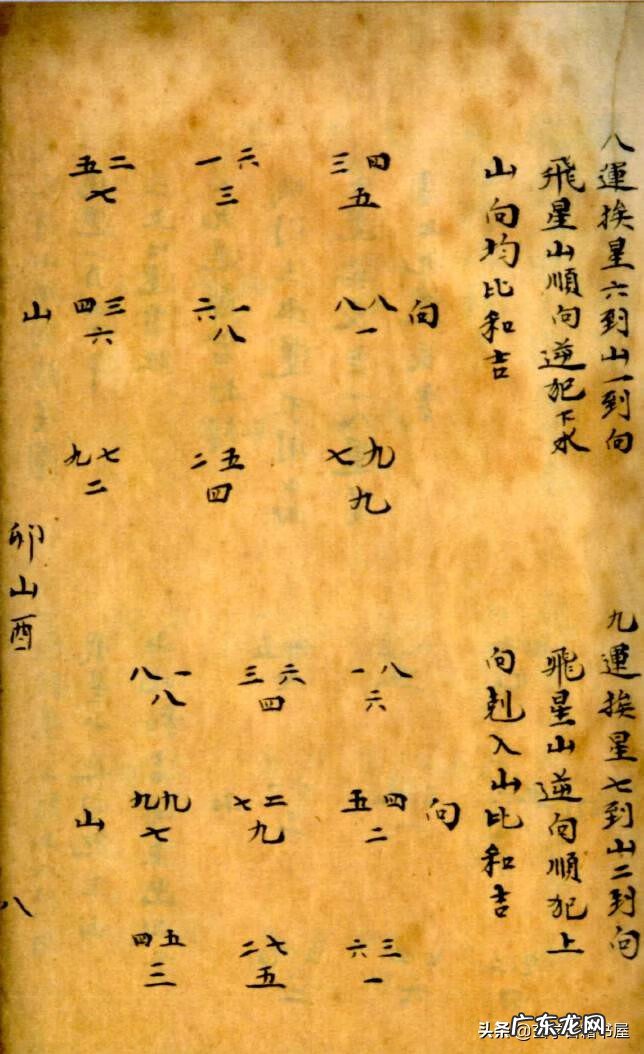 八運挨星六到山一到向
飛星山順向逆犯下水
山向均比和吉
向
三四
五
八八
一
七九
九
一六
三
六一
八
二五
四
五二
七
四三
六
九七
二
山
九運挨星七到山二到向
飛星山逆向順犯上
向剋入山比和吉
向
一八
六
五四
二
六三
一
三六
四
七二
九
二七
五
八一
八
九九
七
四五
三
山
卯山酉
八
头条
广东龙网
书屋